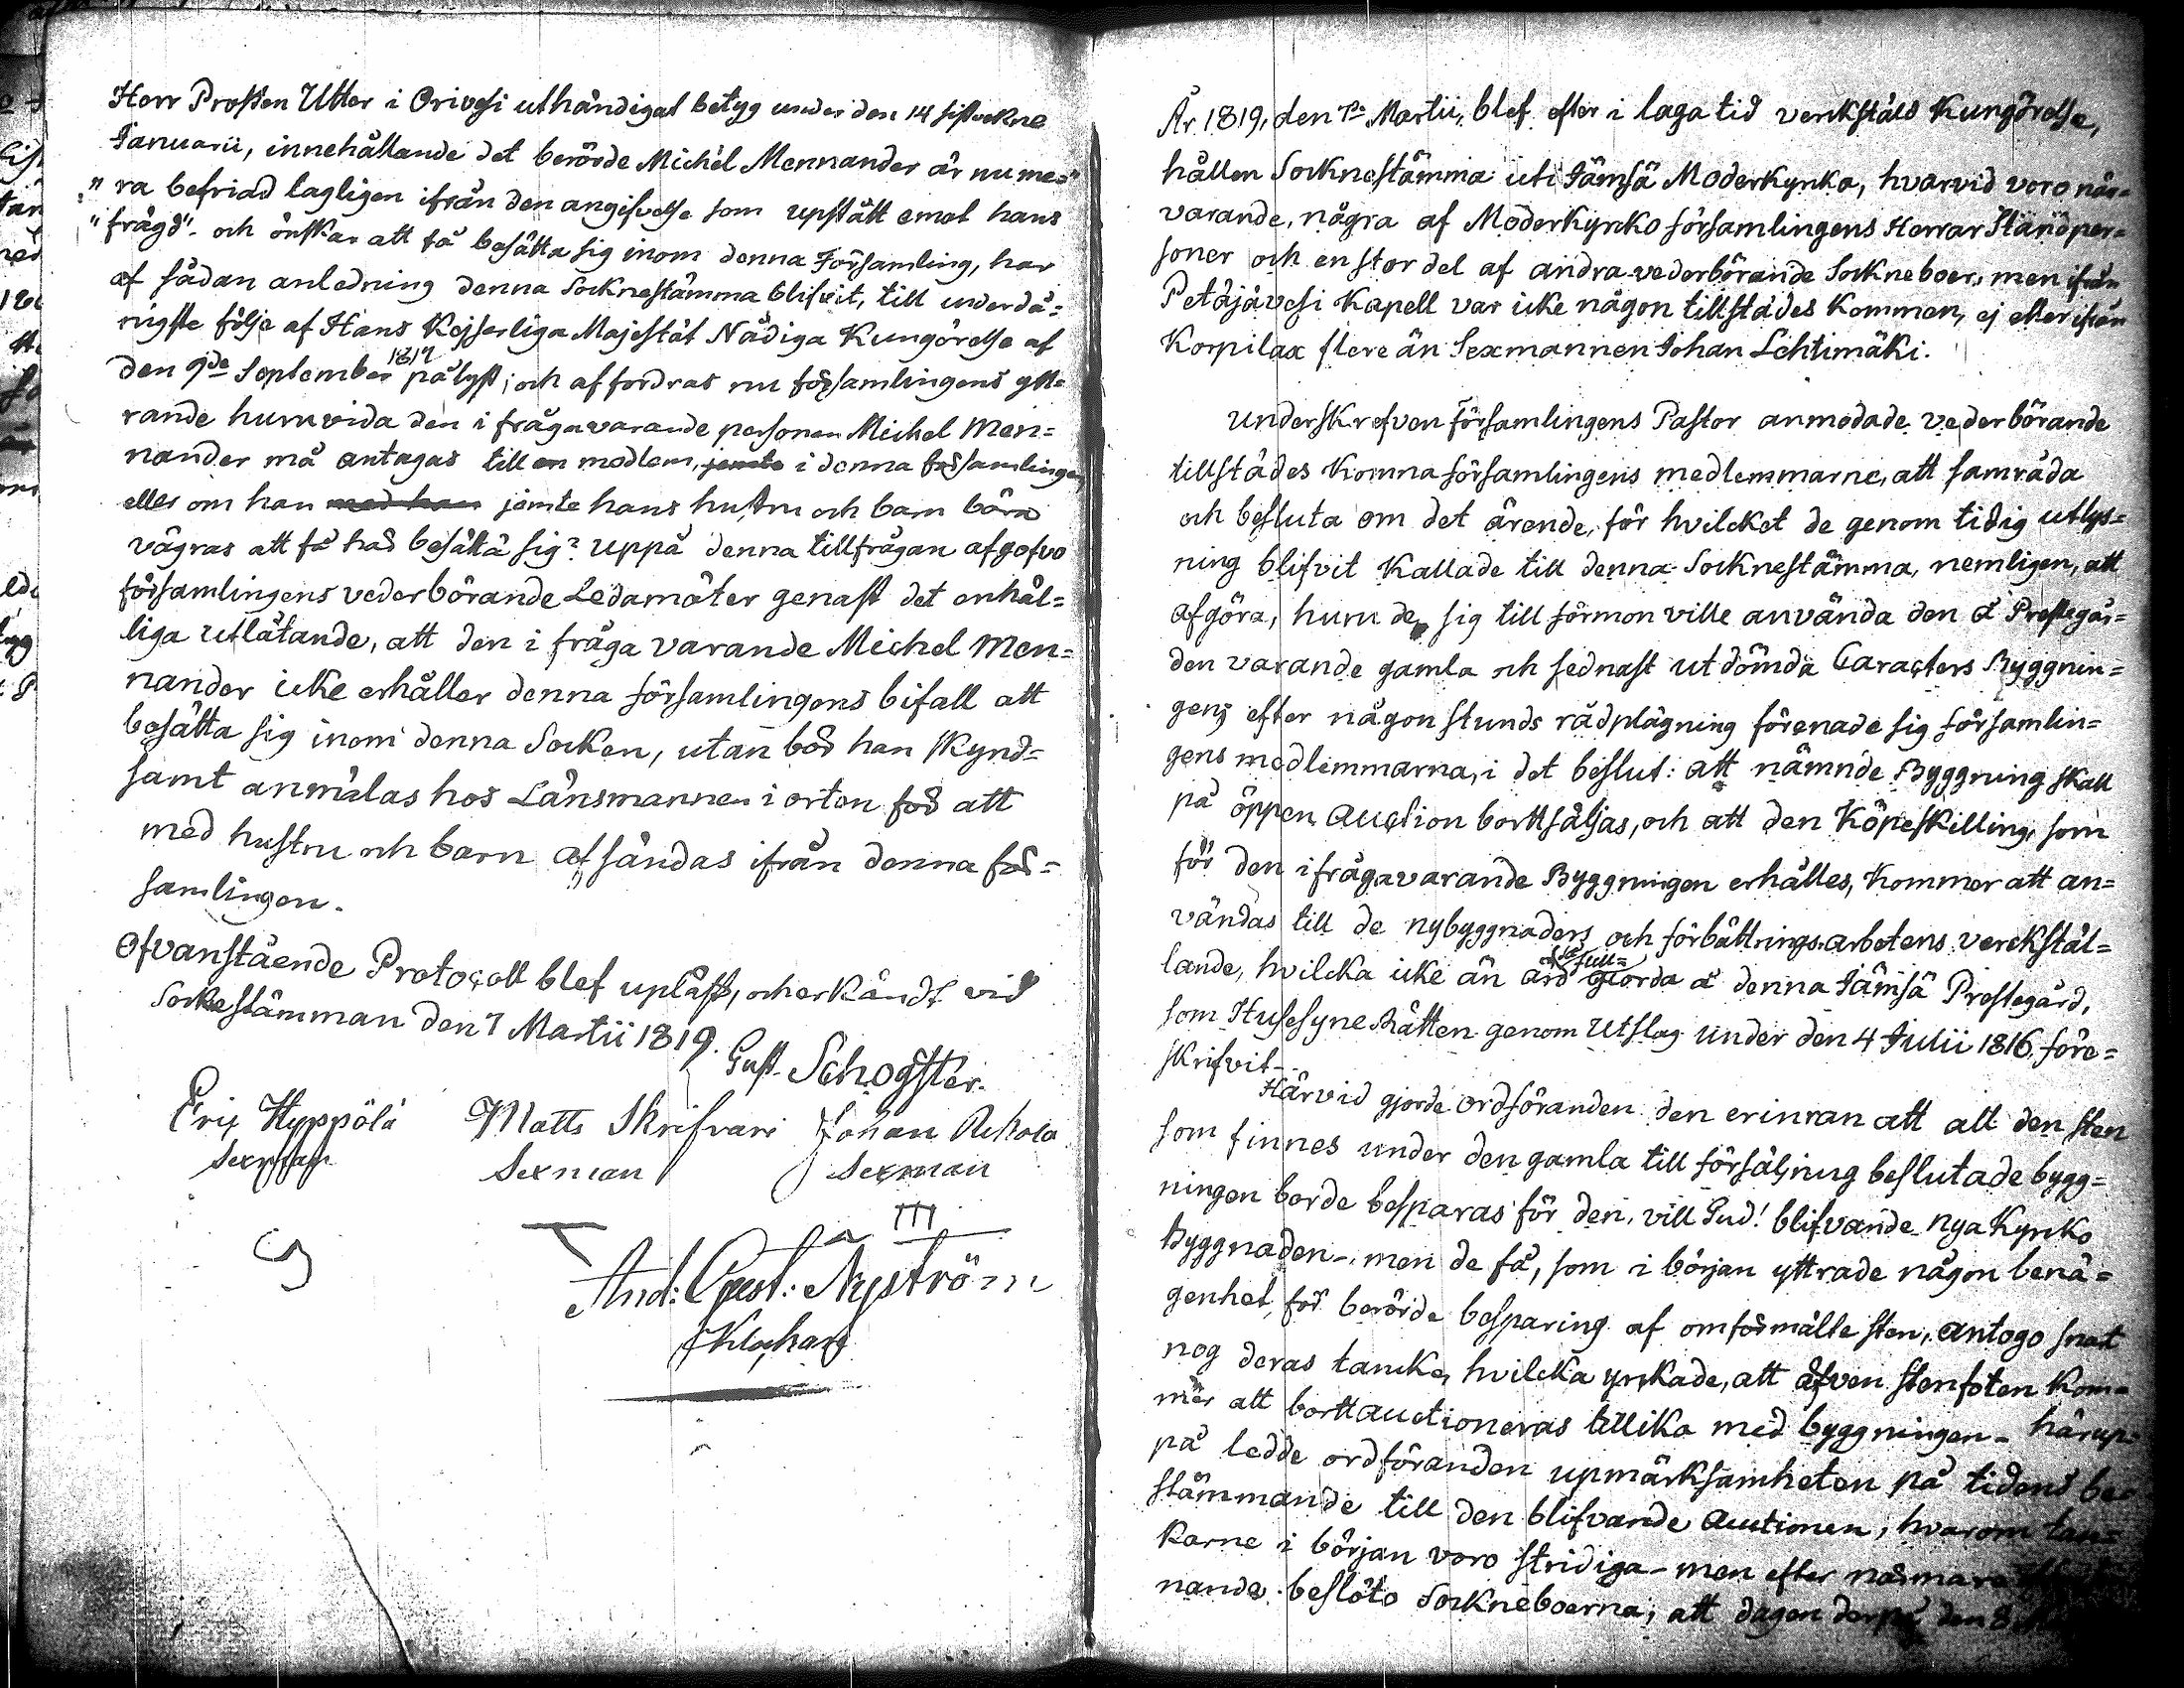 Herr Prosten Utter i Orivesi uthändigat betyg under den 14 sistvekne
Januarii, innehållande det berörde Michel Mennander är nume="
"ra befriad lagligen ifrån den angifvelse som upstått emot hans
"frägd". och önskar att få besätta sig inom denna Församling, har
af sådan anledning denna Socknestämma blifvit, till underdå=
nigste följe af Hans Kejserliga Majestät Nådiga Kungörelse af
den 9de September 1817 pålyst; och affordras nu församlingens ytt=
rande huruvida den i frågavarande personen Michel Men=
nander må antagas till en medlem, jemte i denna församlingen,
eller om han med han jemte hans hustru och barn böra
vägras att få här besätta sig? Uppå denna tillfrågan afgofvo
församlingens vederbörande Ledamöter genast det enhäl=
liga utlåtande, att den i fråga varande Michel Men=
nander icke erhåller denna församlingens bifall att
besätta sig inom denna Socken, utan bör han skynd=
samt anmälas hos Länsmannen i orten för att
med hustru och barn afsändas ifrån denna för=
samlingen.
Ofvanstående Protocoll blef upläst, och erkändt vid
Sockestämman den 7 Martii 1819.
Gust. Schogster.
Eric Hyppölä Matts Skrifvari Johan Rekola
Sexman Sexman Sexman
III
And: Gust: Nyström
Klockare
År 1819, den 7de Martii, blef efter i laga tid verkstäld Kungörelse,
hållen Socknestämma uti Jämsä Moderkyrka, hvarvid voro när=
varande, några af Moderkyrko församlingens Herrar Ståndper=
soner och en stor del af andra vederbörande Sockneboer, men ifrån
Petäjävesi Kapell var icke någon tillstädes Kommen, ej eller ifrån
Korpilax flere än Sexmannen Johan Lehtimäki.
Underskrefven församlingens Pastor anmodade vederbörande
tillstädes Komna församlingens medlemmarne, att samråda
och besluta om det ärende, för hvilcket de genom tidig utlys=
ning blifvit Kallade till denna Socknestämma, nemligen, att
afgöra, huru de sig till förmon ville använda den å Prestegår=
den varande gamla och sednast utdömda Caracters Byggnin=
gen; efter någon stunds rådplägning förenade sig församlin=
gens medlemmarna, i det beslut: att nämnde Byggning skall
på öppen Auction borttsäljas, och att den Köpeskilling, som
för den ifrågavarande Byggningen erhålles, Kommer att an=
vändas till de nybyggnaders och förbättrings-arbetens verckstäl=
lande, hvilcka icke än ärd full= giorda å denna Jämsä Prestegård,
som Husesyne Rätten genom Utslag under den 4 Julii 1816 före=
skrifvit.
Härvid gjorde ordföranden den erinran att all den sten
som finnes under den gamla till försäljning beslutade bygg=
ningen borde besparas för den, vill Gud! blifvande nya Kyrko
byggnaden-, men de få, som i början yttrade någon benä=
genhet för berörde besparing af omförmälte sten, antogo snart
nog deras tancke, hvilcka yrkade, att äfven stenfoten Kom=
mer att borttauctioneras tillika med byggningen - härup=
på ledde ordföranden upmärksamheten på tidens be=
stämmande till den blifvande Auctionen, hvarom tan=
karne i början voro stridiga - men efter närmare
nande beslöto Sockneboerna, att dagen derpå den 8